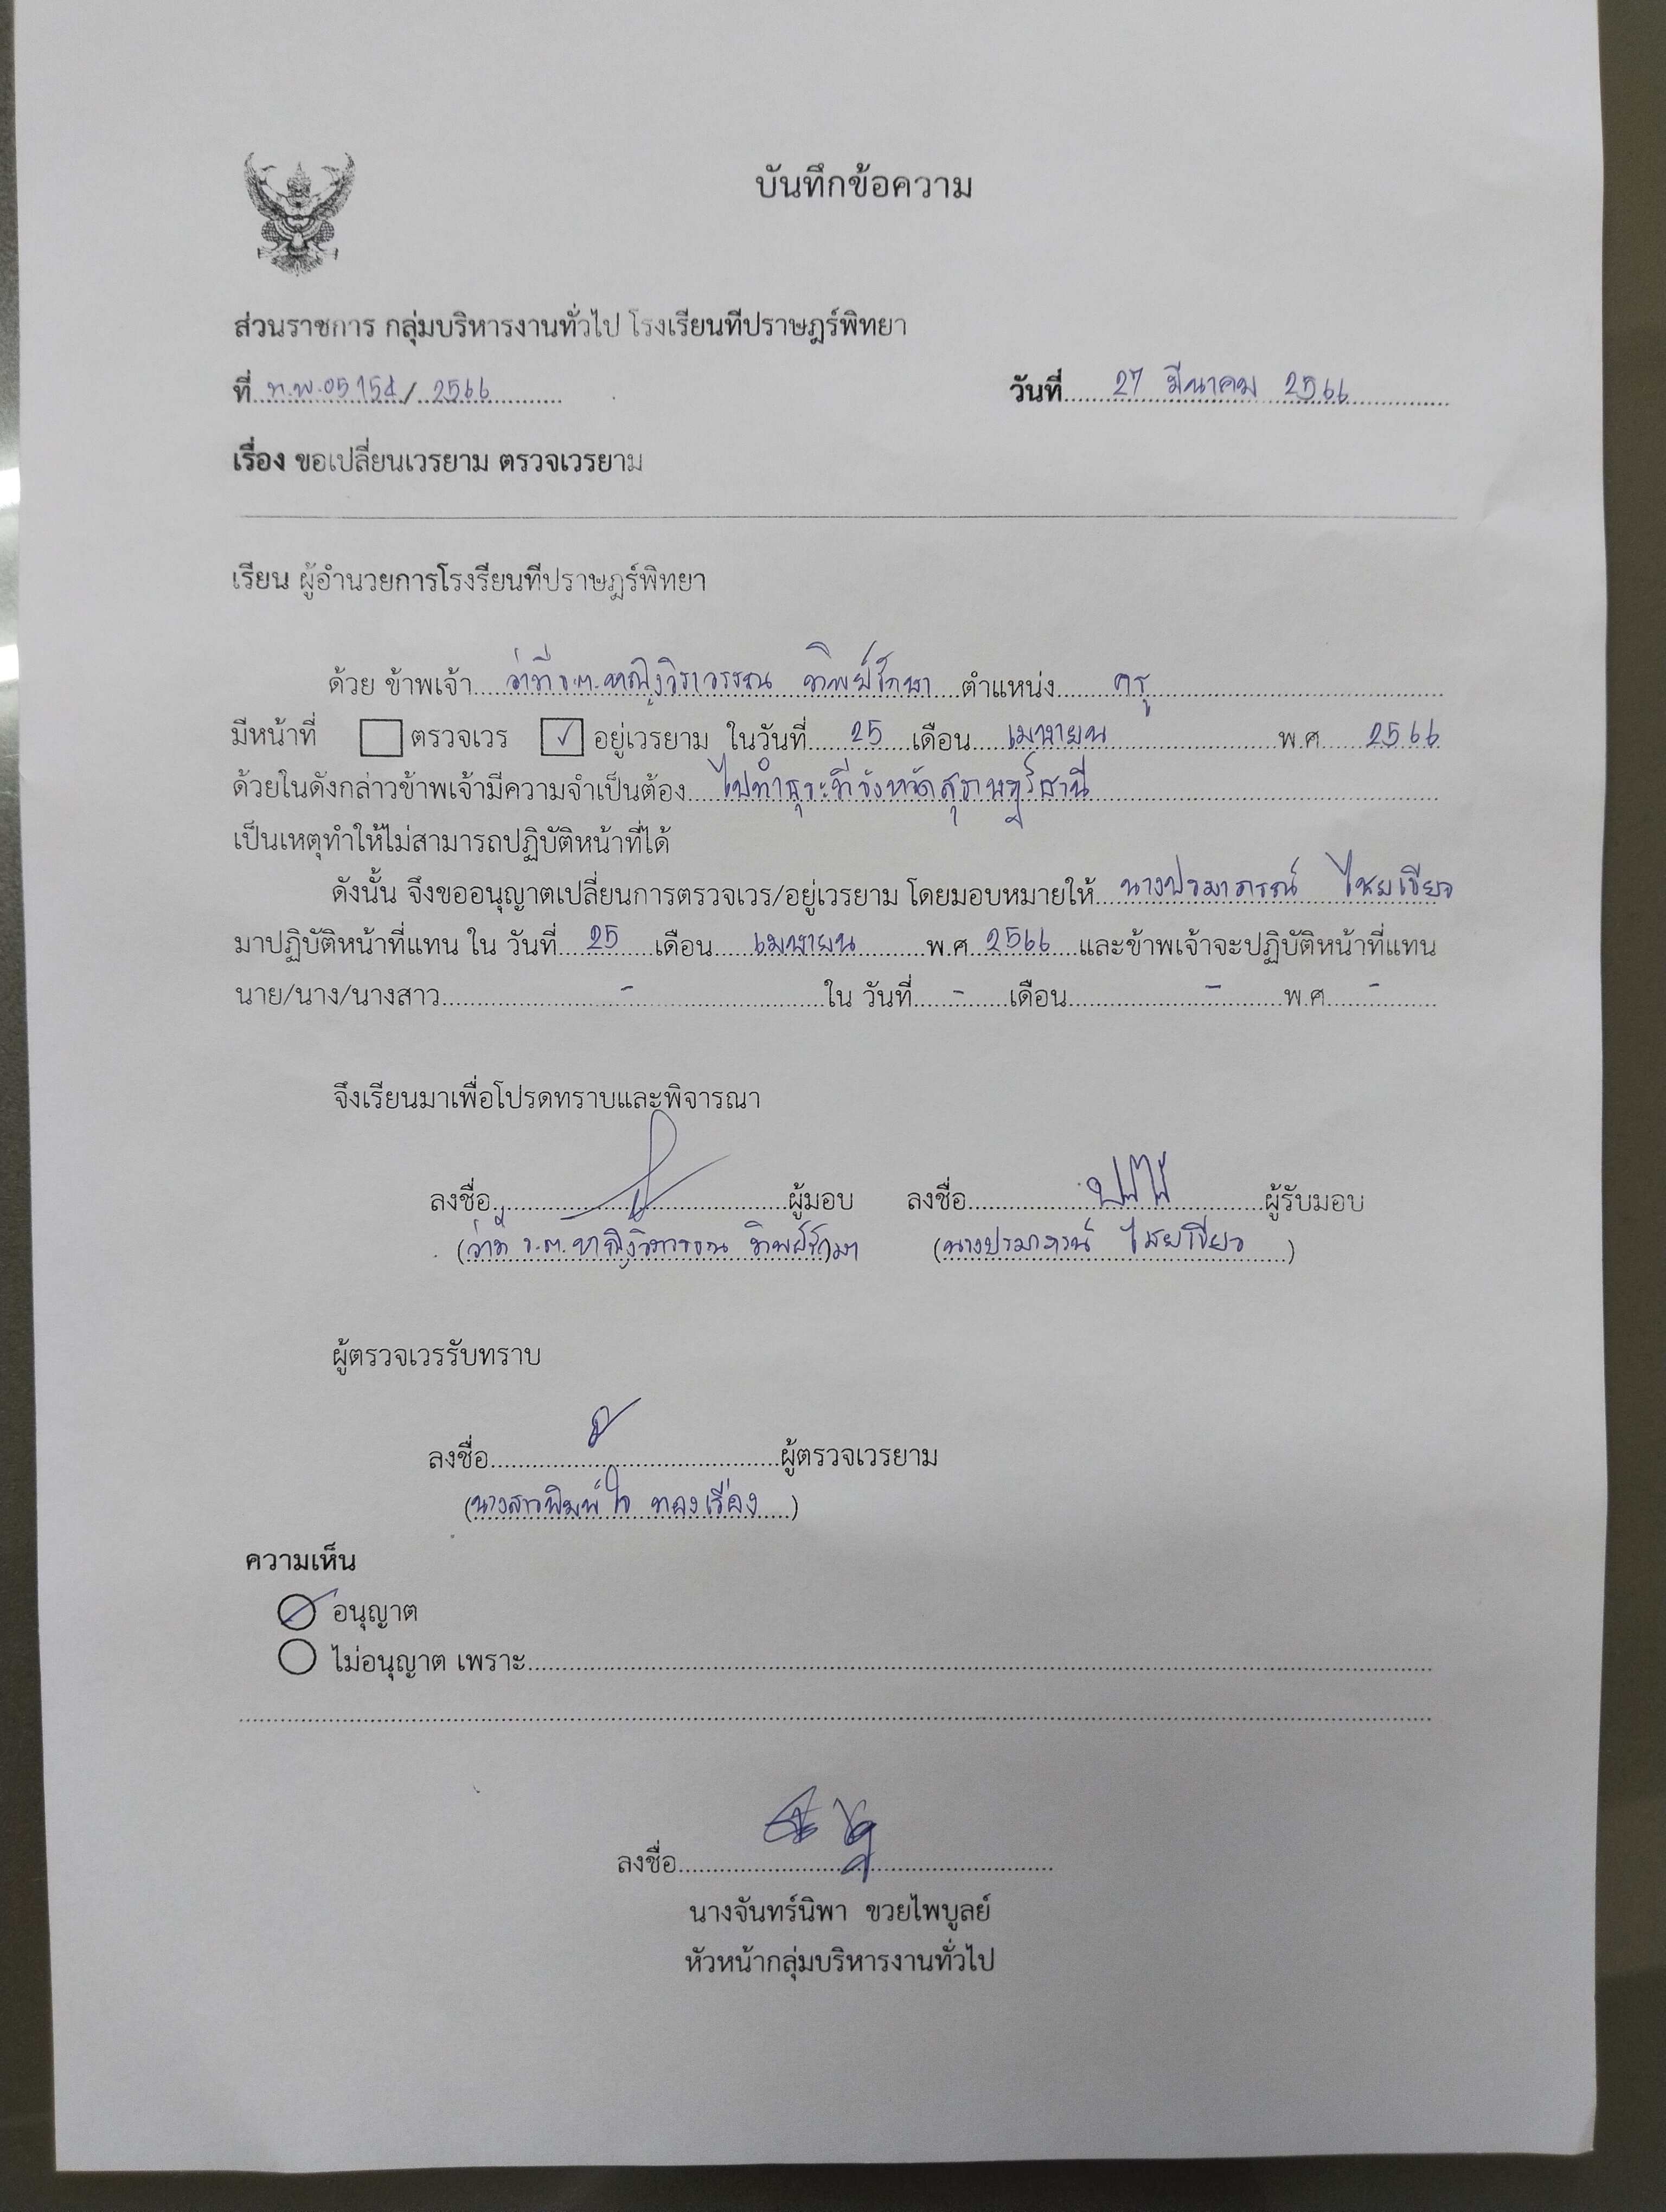 บันทึกข้อความ
ส่วนราชการ กลุ่มบริหารงานทั่วไป โรงเรียนทีปราษฎร์พิทยา
ที่ ท.พ.05154/ 2566 วันที่ 27 มีนาคม 2566
เรื่อง ขอเปลี่ยนเวรยาม ตรวจเวรยาม
เรียน ผู้อำนวยการโรงรียนทีปราษฎร์พิทยา
ด้วย ข้าพเจ้า ว่าที่ ร.ต.หญิงวิราวรรณ ทิพย์รักษา ตำแหน่ง ครู
มีหน้าที่ ตรวจเวร ✓ อยู่เวรยาม ในวันที่ 25 เดือน เมษายน พ.ศ 2566
ด้วยในดังกล่าวข้าพเจ้ามีความจำเป็นต้อง ไปทำธุระที่จังหวัดสุราษฎร์ธานี
เป็นเหตุทำให้ไม่สามารถปฏิบัติหน้าที่ได้
ดังนั้น จึงขออนุญาตเปลี่ยนการตรวจเวร/อยู่เวรยาม โดยมอบหมายให้ นางปรมาภรณ์ ไชยเขียว
มาปฏิบัติหน้าที่แทน ใน วันที่ 25 เดือน เมษายน พ.ศ 2566 และข้าพเจ้าจะปฏิบัติหน้าที่แทน
นาย/นาง/นางสาว - ใน วันที่ - เดือน - พ.ศ -
จึงเรียนมาเพื่อโปรดทราบและพิจารณา
ลงชื่อ ผู้มอบ ลงชื่อ ผู้รับมอบ
(ว่าที่ ร.ต.หญิงวิราวรรณ ทิพย์รักษา) (นางปรมาภรณ์ ไชยเขียว)
ผู้ตรวจเวรรับทราบ
ลงชื่อ ผู้ตรวจเวรยาม
(นางสาวพิมพ์ใจ ทองเรือง)
ความเห็น
อนุญาต
ไม่อนุญาต เพราะ
ลงชื่อ
นางจันทร์นิพา ขวยไพบูลย์
หัวหน้ากลุ่มบริหารงานทั่วไป